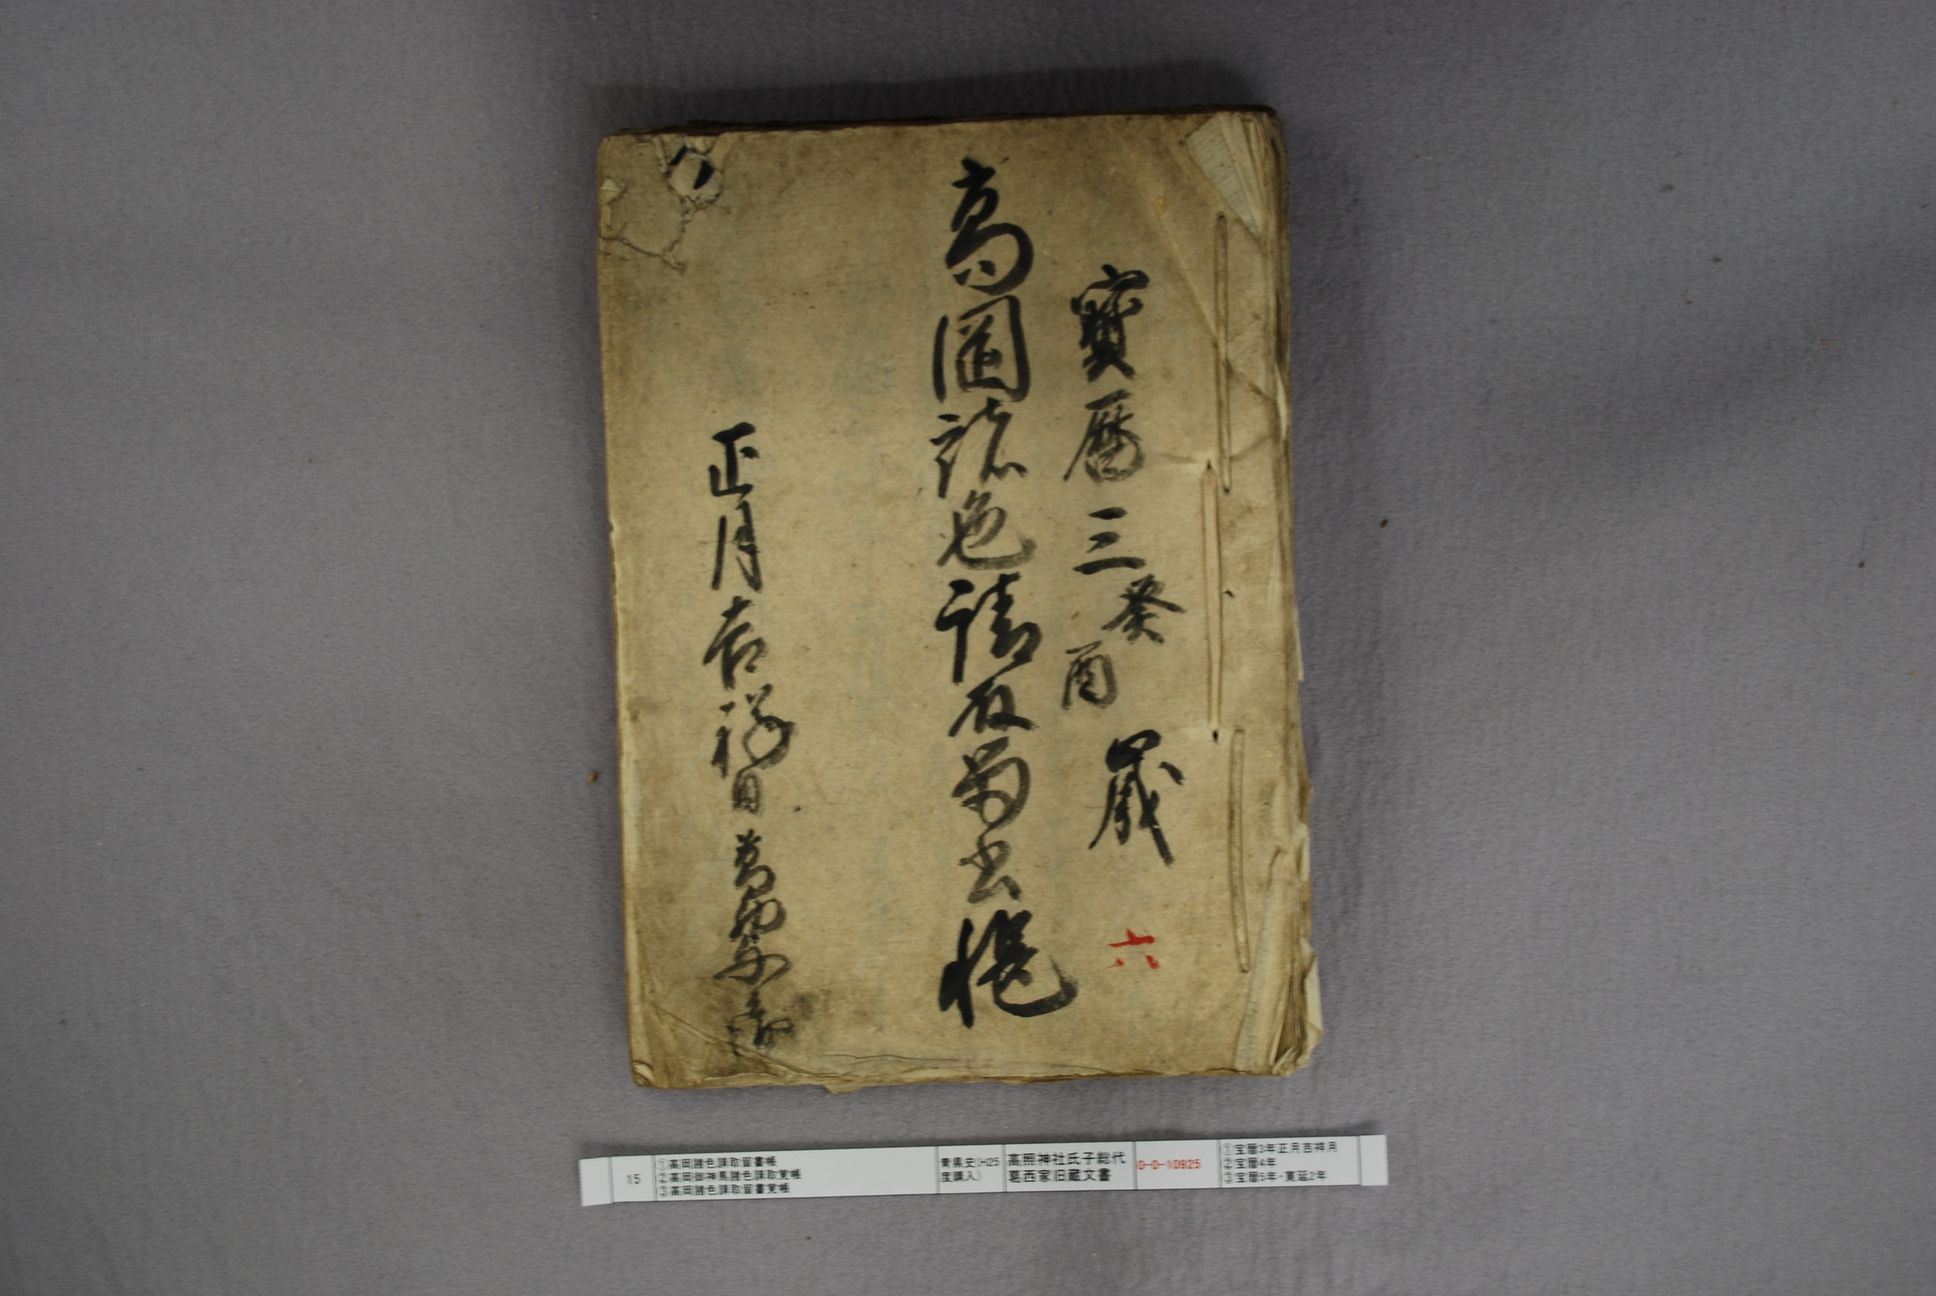 寳暦三癸酉歳
六
高岡諸色請取留書帳
正月吉祥日
15
①高岡諸色請取留書帳
②高岡御神馬諸色請取覚帳
③高岡諸色請取留書覚帳
青県史(H25
度購入)
高照神社氏子総代
葛西家旧蔵文書
0-0-10925
①宝暦3年正月吉祥月
②宝暦4年
③宝暦5年・寛延2年